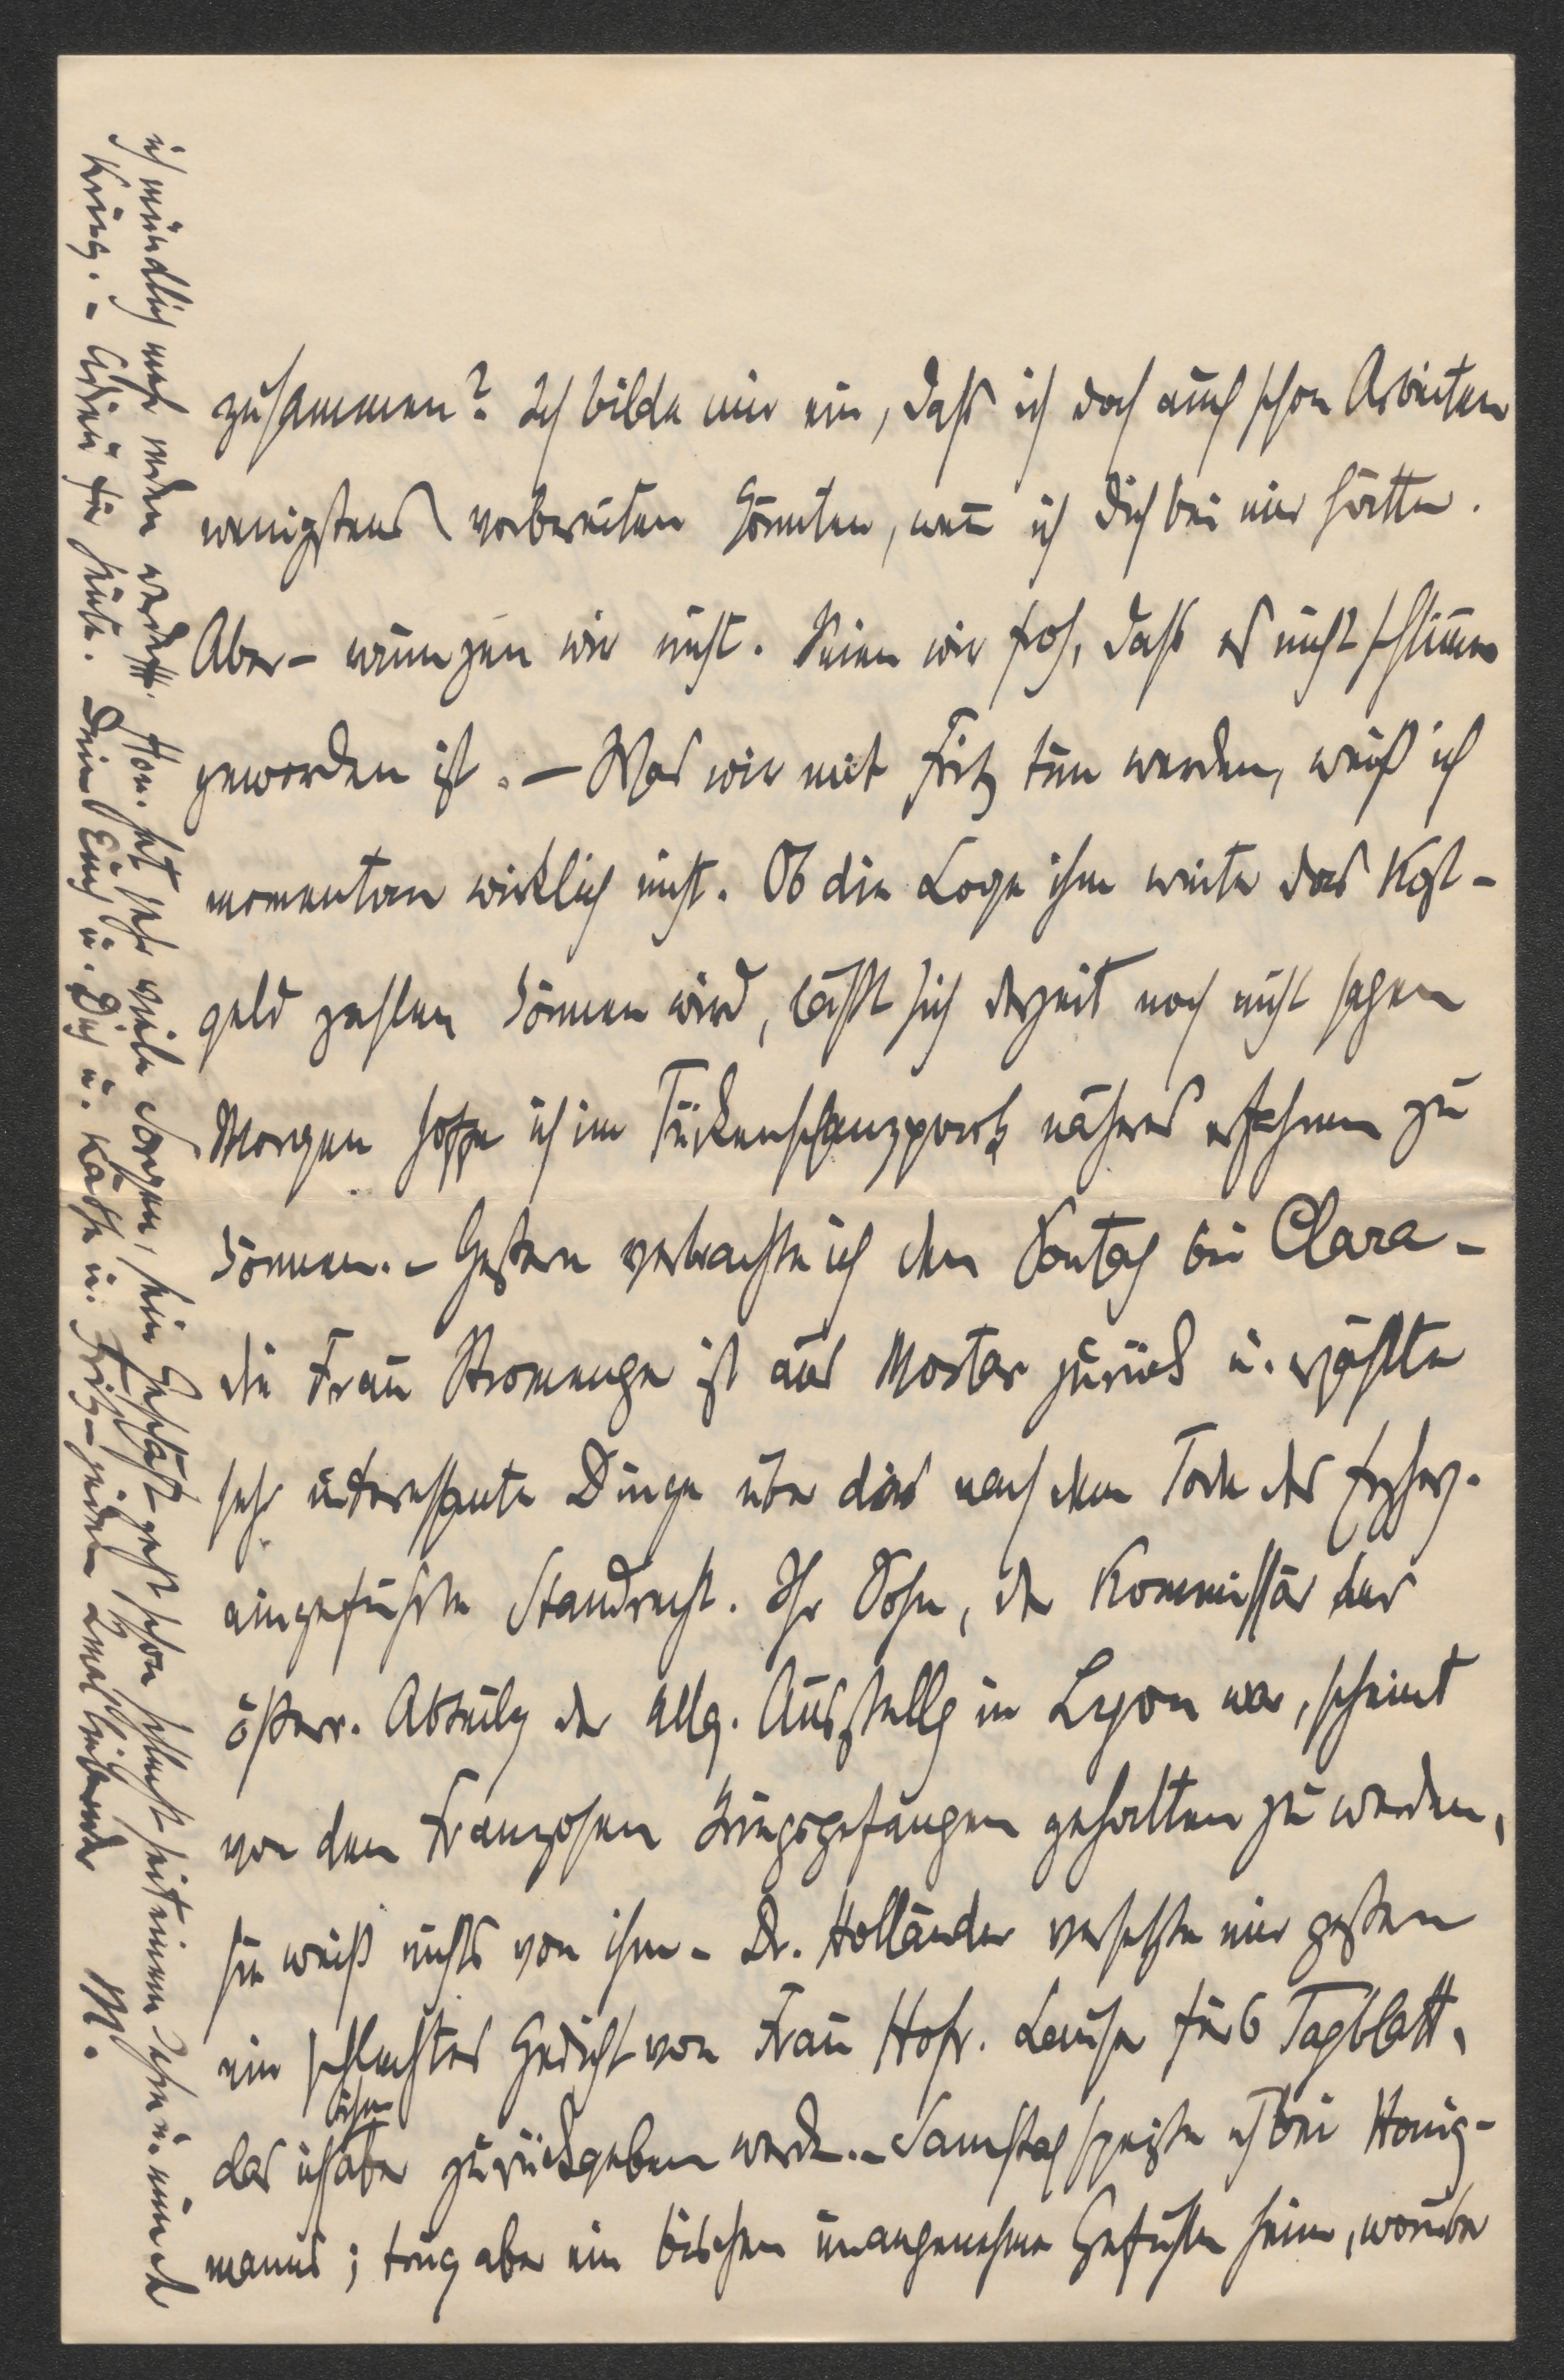 zusammen? Ich bilde mir ein, daß ich doch auch schon Arbeiten
wenigstens vorbereiten könnten, weñ ich Dich bei mir hätte.
Aber – raunzen wir nicht. Seien wir froh, daß es nicht schlim̄er
geworden ist. – Was wir mit Fritz tun werden, weiß ich
momentan wirklich nicht. Ob die Loge ihm weiter das Kost-
geld zahlen können wird, läßt sich derzeit noch nicht sagen
Morgen hoffe ich im Türkenschanzpark näheres erfahren zu
können. – Gestern verbrachte ich den Sontag bei Clara –
die Frau ist aus Mostar zurück u. erzählte
sehr interessante Dinge über das nach dem Tode des Erzherz.
eingeführte Standrecht. Ihr Sohn, der Kommissär der
österr. Abteilg der Allg. Ausstellg in Lyon war, scheint
von den Franzosen kriegsgefangen gehalten zu werden,
sie weiß nichts von ihm. – Dr. Holländer versetzte mir gestern
ein schlechtes Gedicht von Frau Hofr. fürs Tagblatt,
das ich ihm aber zurückgeben werde. – Samstag speiste ich bei Honig-
manns; trug aber ein bischen unangenehme Gefühle heim, worüber
ich mündlich mehr reden werde. Hon. hat sehr viele Sorgen, sein Geschäft geht schon schlecht seit einem Jahre u. nun der
Krieg. – Adieu für heute. Dein Euch u. Dich u. Käthe u. Fritz – jeden 2mal liebender M.